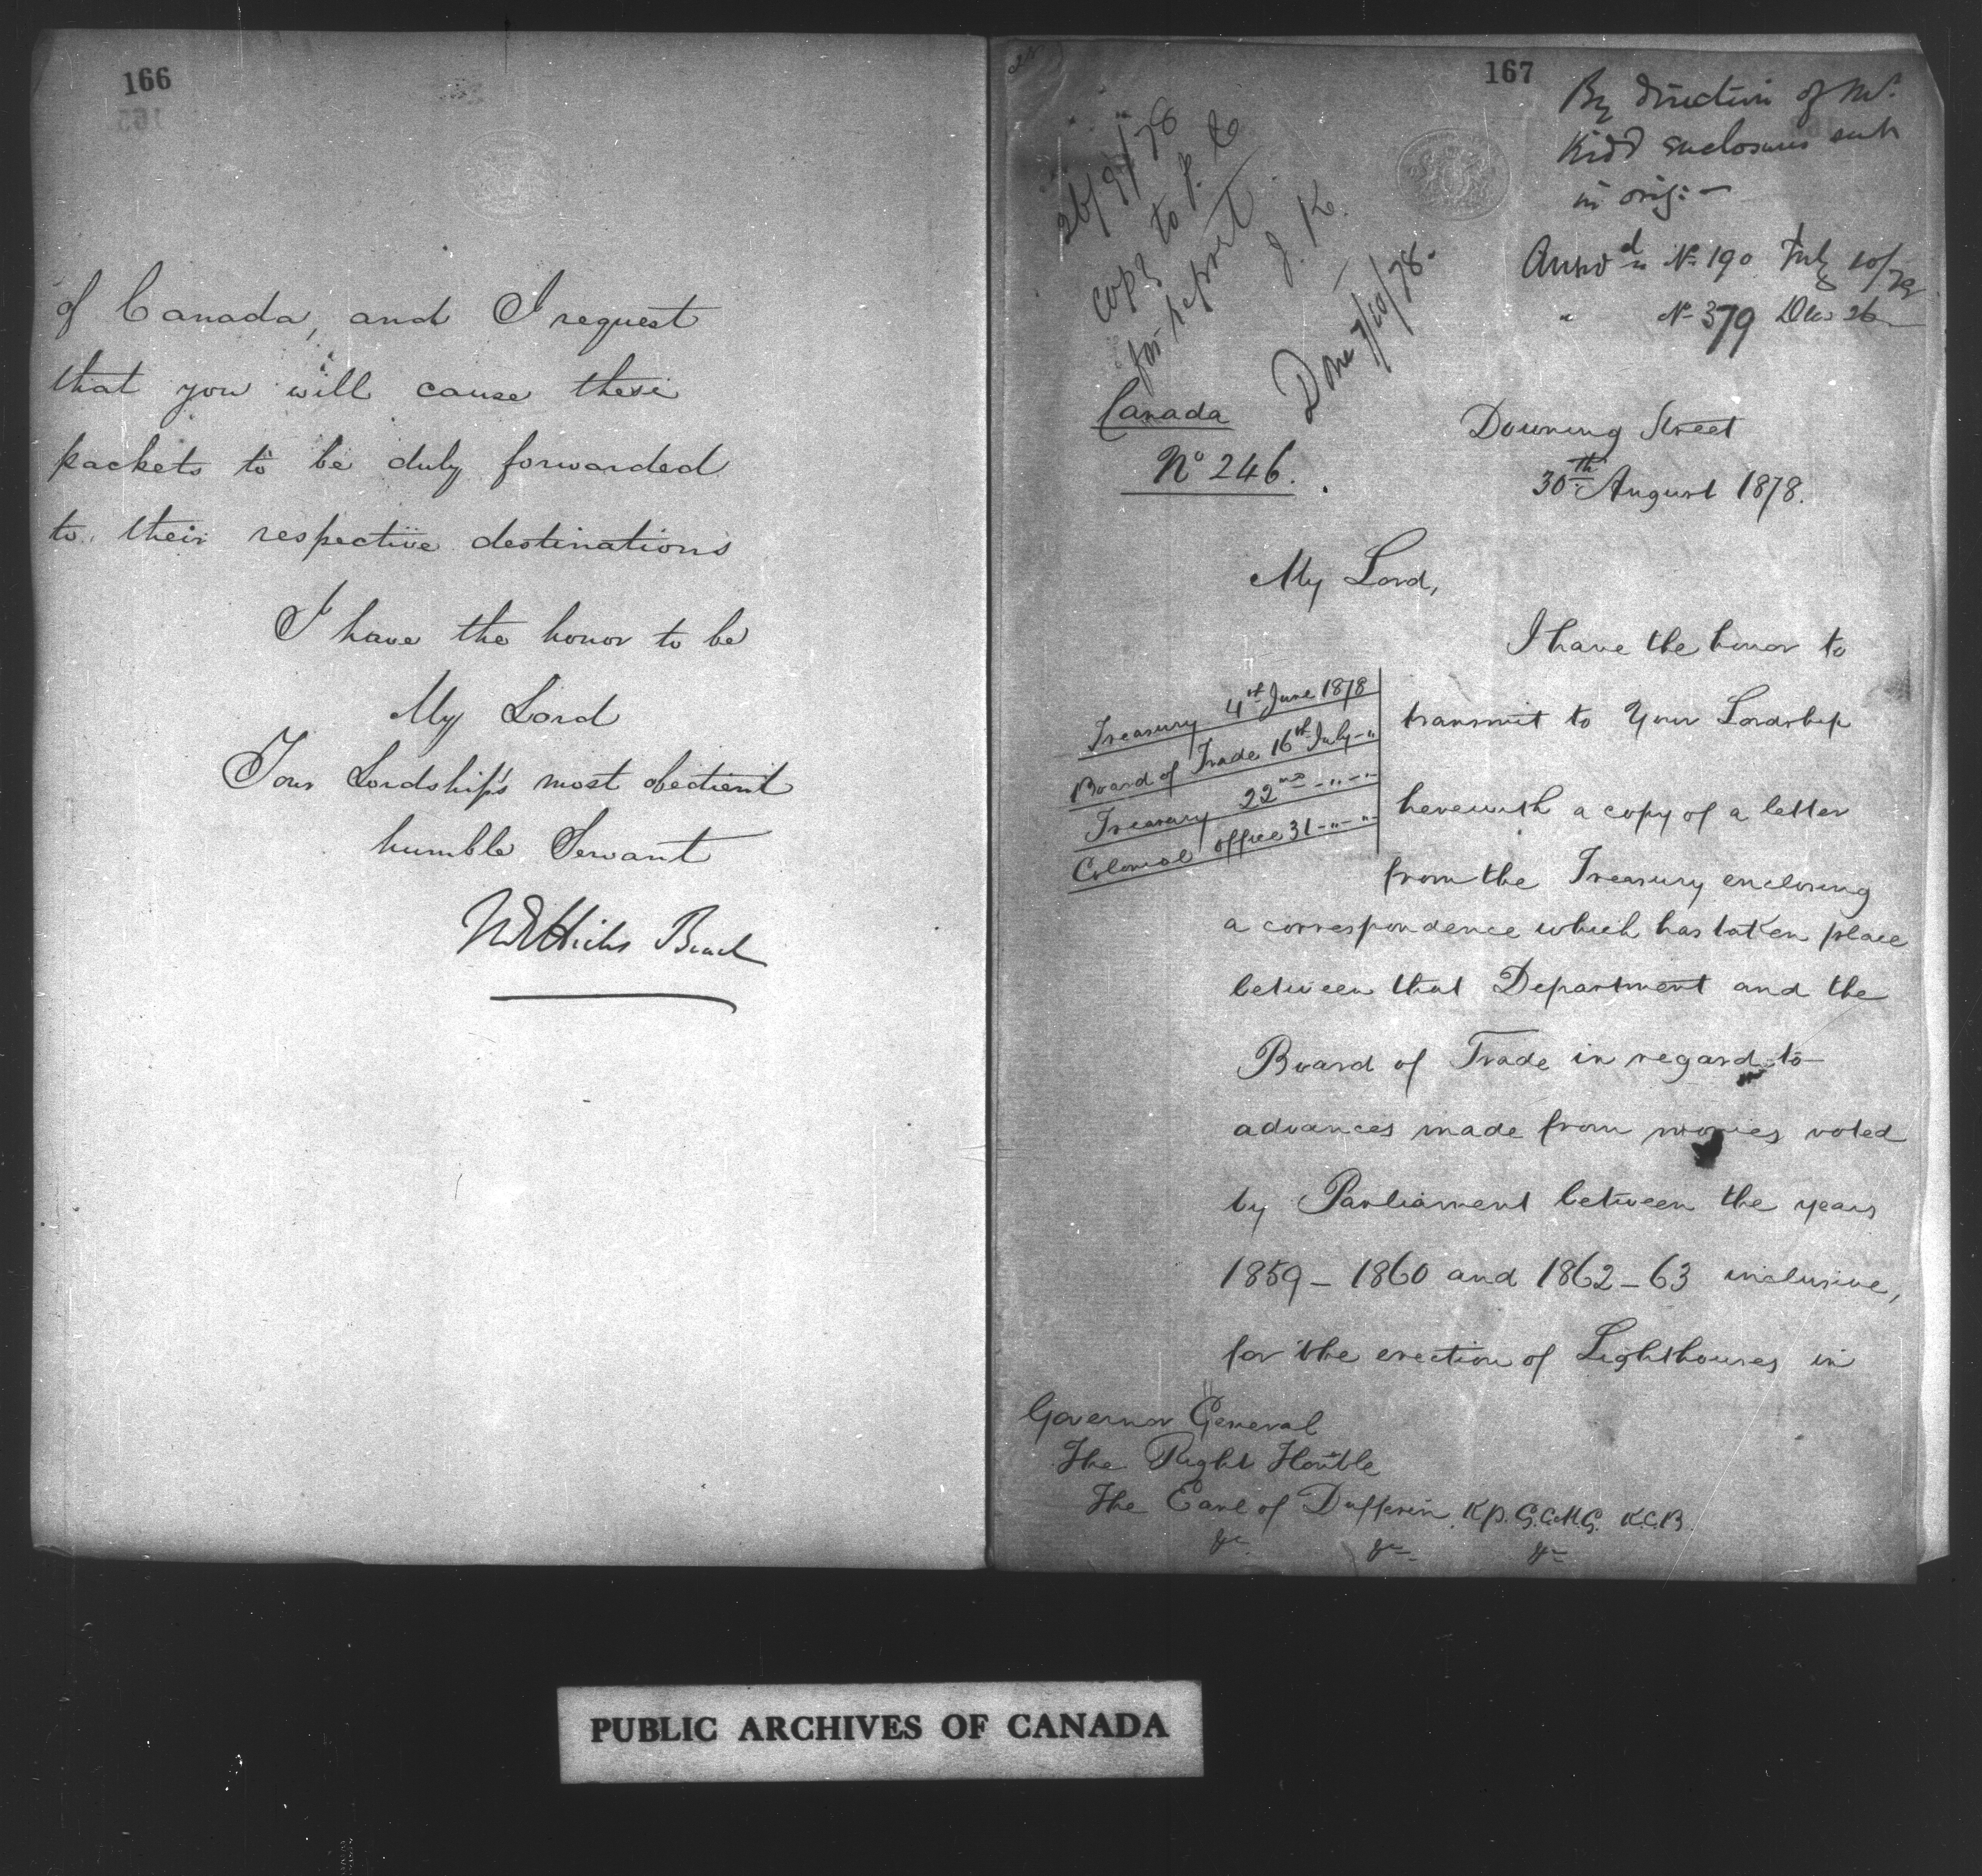 166
of Canada, and I request
that you will cause these
packets to be duly forwarded
to their respective destinations
I have the honor to be
My Lord
Your Lordship's most obedient
humble Servant
M E Hicks Beach
167
By direction of Mr.
Kidd enclosures sent
in orig: —
Answd in No 190 July 10/79
" No 379 Dec 26
26/9/78
copy to P. C
for report
J. K.
Done 7/10/78.
Canada
No 246.
Downing Street
30th August 1878.
My Lord,
I have the honor to
transmit to Your Lordship
herewith a copy of a letter
from the Treasury enclosing
a correspondence which has taken place
between that Department and the
Board of Trade in regard to
advances made from monies voted
by Parliament between the years
1859 – 1860 and 1862 – 63 inclusive,
for the erection of Lighthouses in
Treasury 4th June 1878
Board of Trade 16th July – "
Treasury 22nd – " – "
Colonial Office 31 – " – "
Governor General
The Right Honble
The Earl of Dufferin, K.P. G.C.M.G. K.C.B.
&c &c &c
PUBLIC ARCHIVES OF CANADA